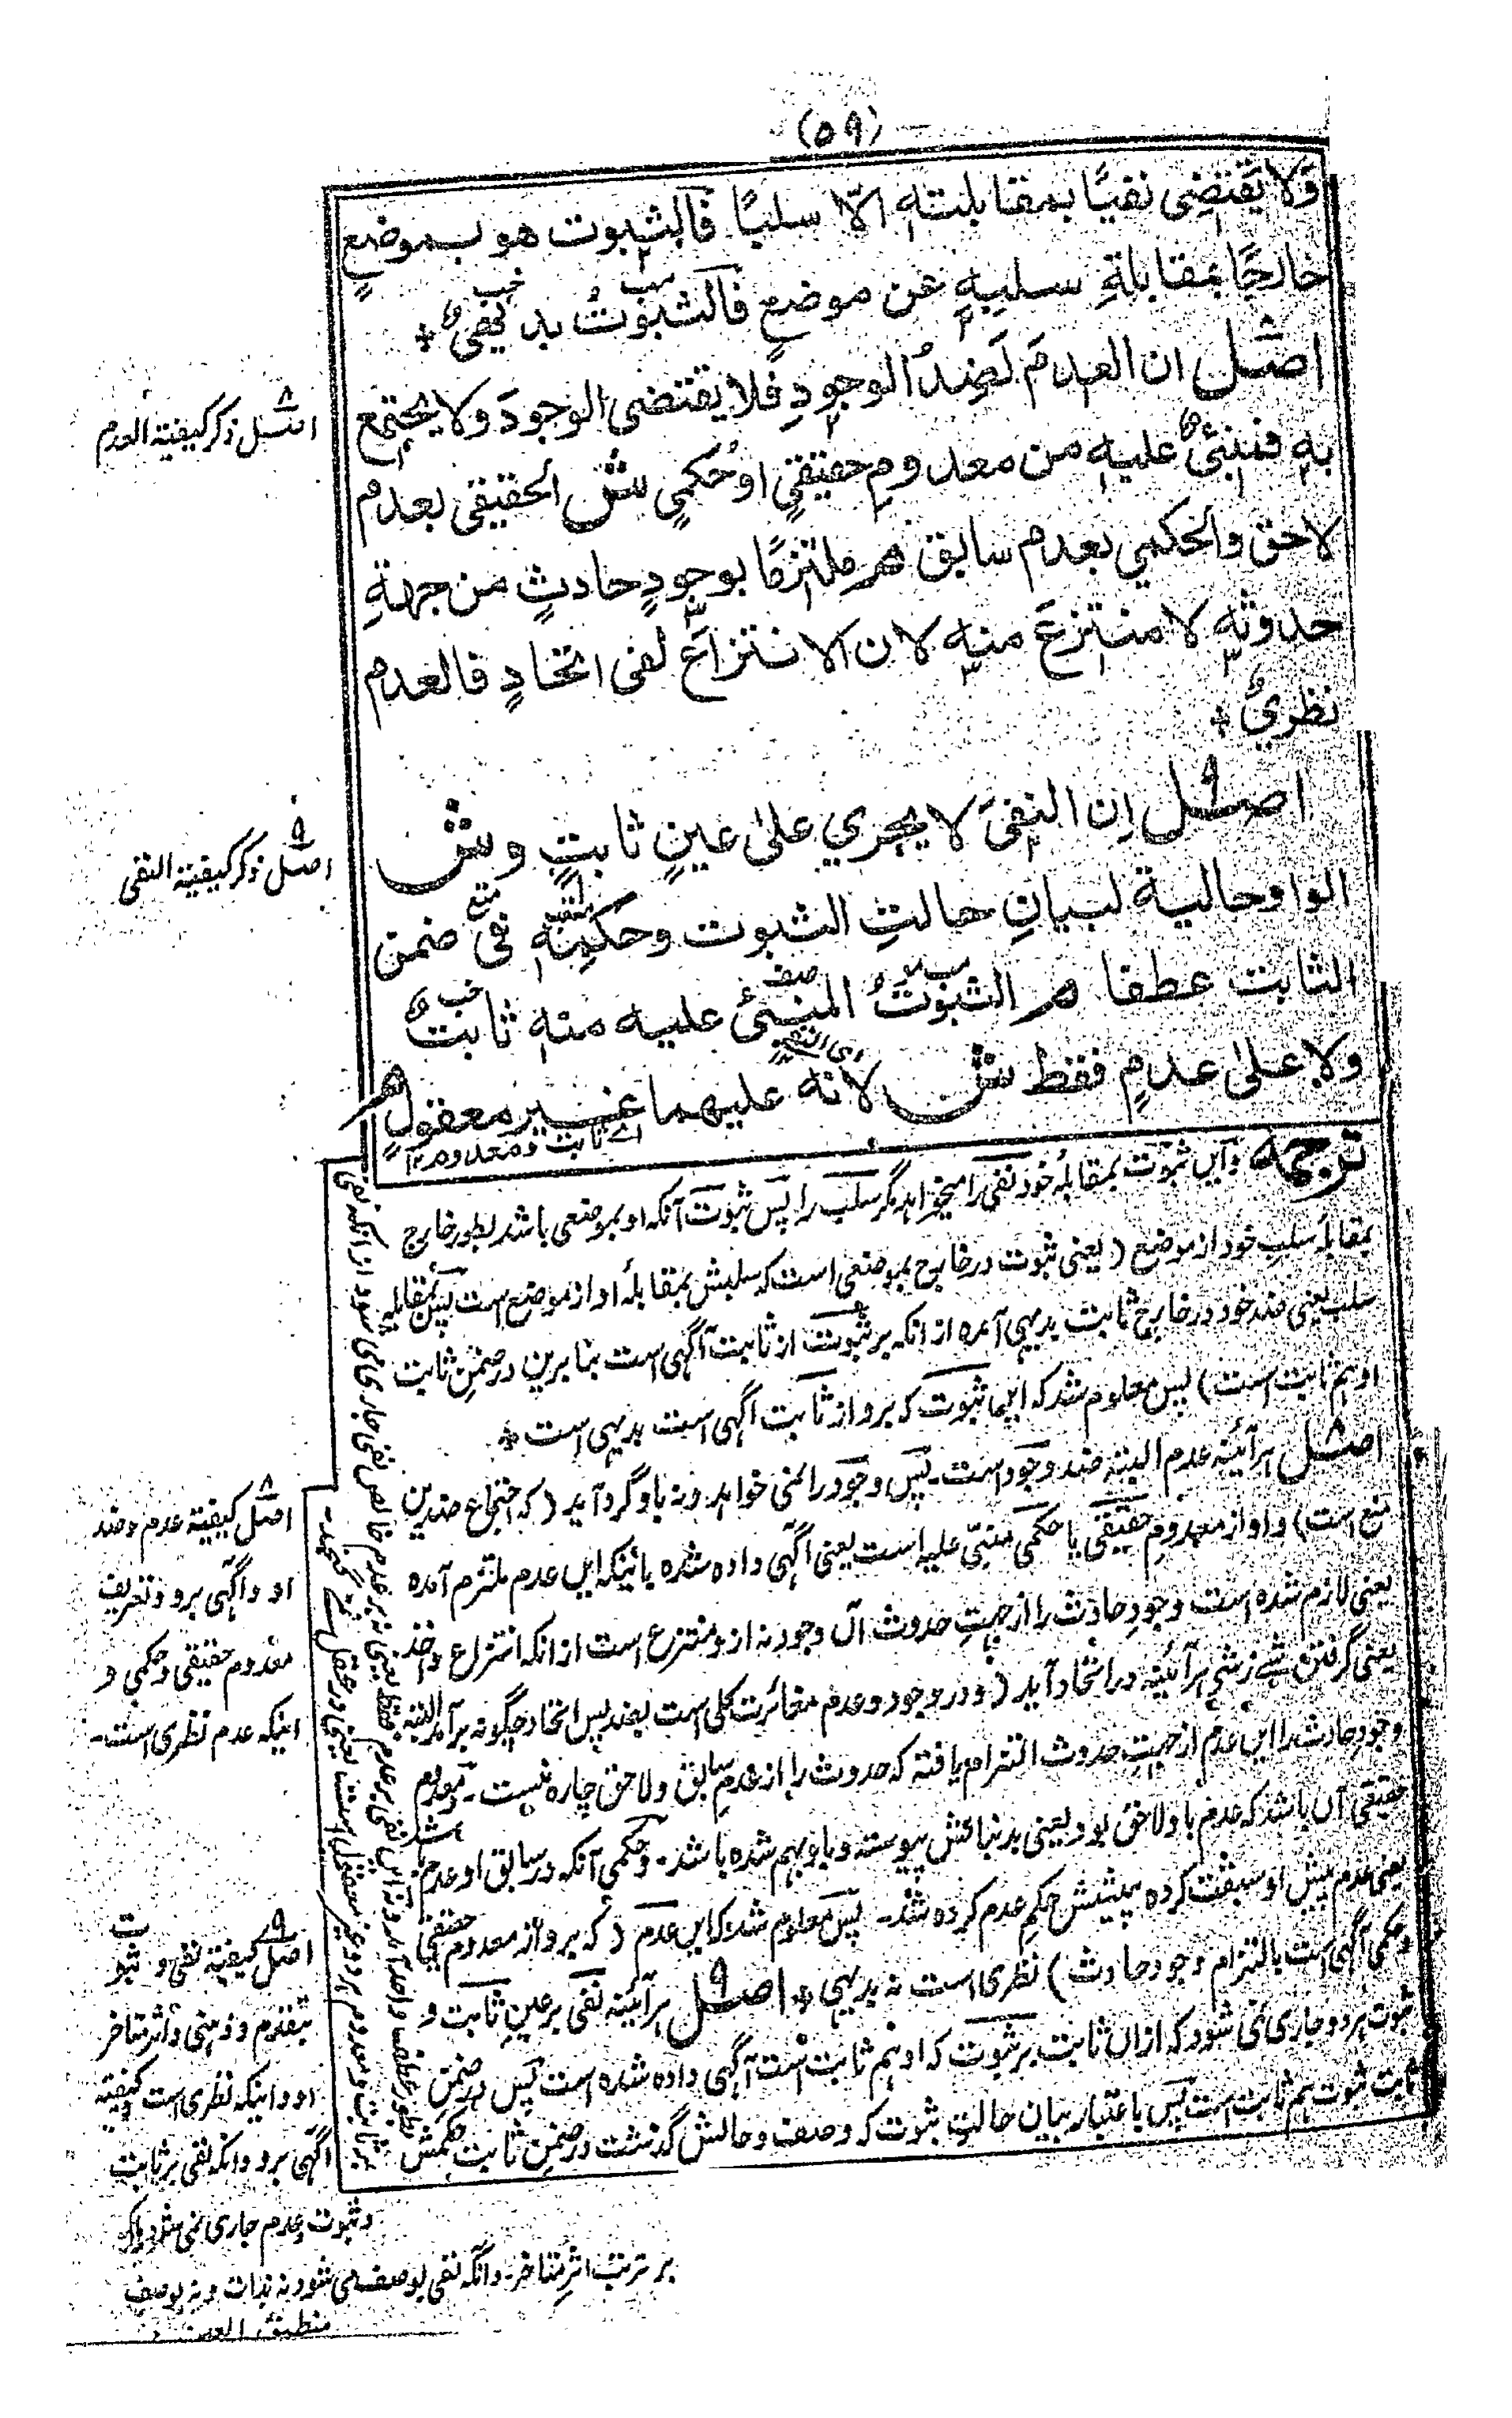 (۵۹)
وَلا یَقتضِی نفیًا بمقابلتہ الّا سلبًا فَالثبوت هو بموضعٍ
خارجًا بمقابلةِ سلبِهٖ عن موضعٍ فَالثبوتُ بدیهیٌ
اصل ان العدمَ لَضِدُ الوجودِ فلا یقتضی الوجودَ ولا یجتمع
بهٖ فمنبئٌ علیهٖ من معدومٍ حقیقیٍ اوْ حُکمیٍ ش الحقیقی بعدم
لاحق والحکمی بعدم سابق هر ملتزمًا بوجودٍ حادثٍ من جهةِ
حدوثهٖ لا منتزعَ منهٖ لان الانتزاعَ لفی اتخادٍ فالعدم
نظریٌ
اصل اِن النفیَ لا یجری علیٰ عینٍ ثابتٍ و ش
الواو حالیة لبیانِ حالتِ الثبوت وحکمِهٖ فی ضمن
الثابت عطفا هر الثبوتُ المنبئُ علیه منهٖ ثابتٌ
ولا علیٰ عدمٍ فقط ش لانه علیهما غیر معقولٍ هر
اے ثابت ومعدوم ۱۲
ترجمه واین ثبوت بمقابلۂ خود نفی را نمیخواهد مگر سلب را پس ثبوت آنکه او بموضعی باشد بطور خارج
بمقابلۂ سلب خود از موضع (یعنی ثبوت در خارج بموضعی است که سلبش بمقابلۂ او از موضع است پس بمقابلہ
سلب یعنی ضد خود در خارج ثابت بدیهی آمده از انکه بر ثبوت از ثابت آگهی است بنا برین در ضمن ثابت
او هم ثابت است) پس معلوم شد که این ثبوت که برو از ثابت آگهی است بدیهی است
اصل هر آئینه عدم البته ضد وجود است۔ پس وجود را نمی خواهد ونه باو گرد آید (که اجتماع ضدین
منع است) و او از معدوم حقیقی یا حکمی منبّی علیه است یعنی آگهی داده شده باینکه این عدم ملتزم آمده
یعنی لازم شده است وجودِ حادث را از جهتِ حدوث آن وجود نه ازو منتزع است از انکه انتزاع واخذ
یعنی گرفتن شے ز شی هر آئینه در اتخاد آید (و در وجود و عدم مغائرت کلی است بضد پس اتخاد چگونه برآمد البته
وجود حادث را این عدم از جهتِ حدوث التزام یافته که حدوث را از عدمِ سابق ولاحق چاره نیست۔ معدوم
حقیقی آن باشد که عدم باو لاحق بود یعنی بدنبالش پیوسته و باو بهم شده باشد۔ وحکمی آنکه در سابق او عدم باشد
یعنی عدم پیش او سبقت کرده پیشیش حکم عدم کرده شد۔ پس معلوم شد که این عدم (که برو از معدوم حقیقی
وحکمی آگهی است بالتزام وجود حادث) نظری است نه بدیهی اصل هر آئینه نفی بر عین ثابت و
ثبوت هر دو جاری نمی شود که ازان ثابت بر ثبوت که او هم ثابت است آگهی داده شده است پس در ضمن
ثابت ثبوت هم ثابت است پس باعتبار بیان حالت ثبوت که وصف و حالش گذشت در ضمن ثابت حکمش
اصل ذکر کیفیة العدم
اصل ذکر کیفیة النفی
اصل کیفیة عدم وضد
او و آگهی برو و تعریف
معدوم حقیقی وحکمی و
اینکه عدم نظری است۔
اصل کیفیة نفی و ثبوت
بتقدم و ذهنی و اثر متاخر
او و اینکه نظری است وکیفیة
آگهی برو وانکه نفی بر ثابت
وثبوت وعدم جاری نمی شود
بر ترتب اثرِ متاخر۔ وانکه نفی بوصف می شود نه بذات و نه بوصف